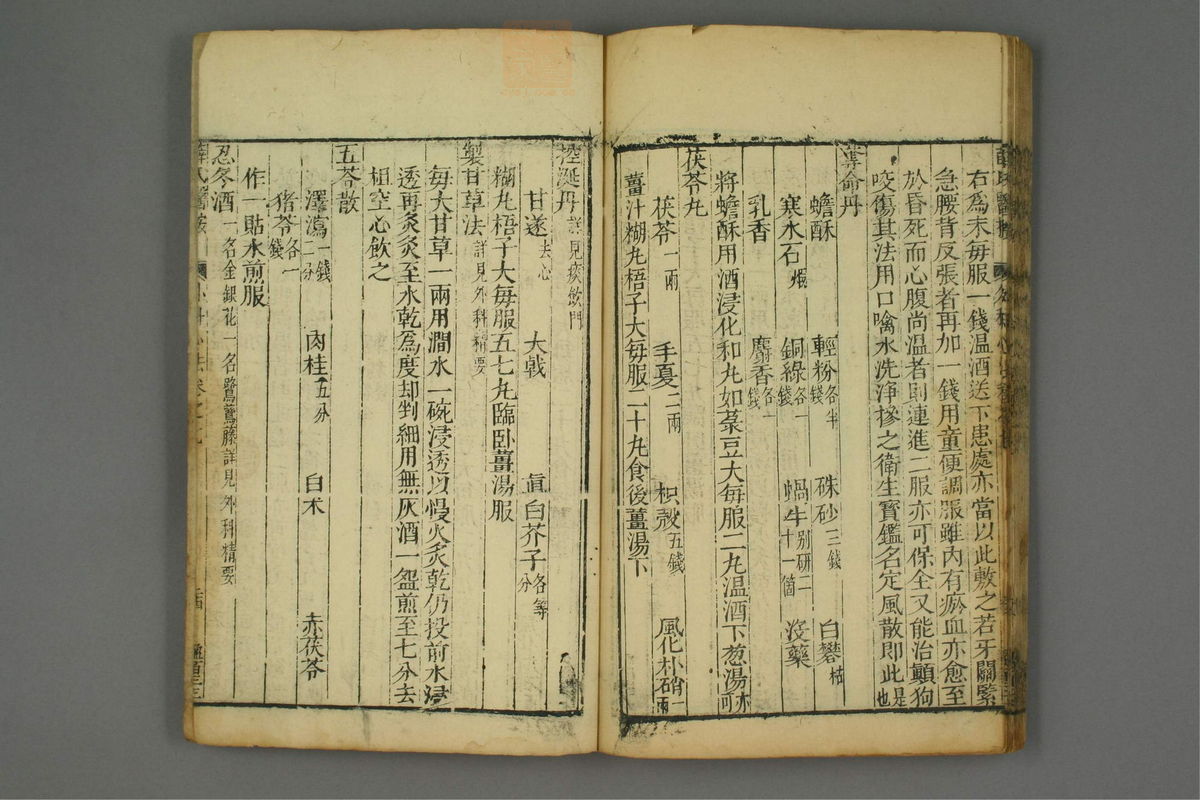 右為末毎服一錢温酒送下患處亦當以此敷之若牙關緊
急腰背反張者再加一錢用童便調服雖内有瘀血亦愈至
於昏死而心腹尚温者則連進二服亦可保全又能治顛狗
咬傷其法用口噙水洗淨摻之衛生寳鑑名定風散即此是也
奪命丹
蟾酥 輕粉各半錢 硃砂三錢 白礬枯
寒水石煅 銅綠各一錢 蝸牛别研二十一箇 沒藥
乳香 麝香各一錢
將蟾酥用酒浸化和丸如菉豆大毎服二丸温酒下葱湯亦可
茯苓丸
茯苓一兩 半夏二兩 枳殼五錢 風化朴硝一兩
薑汁糊丸梧子大毎服二十丸食後薑湯下
控涎丹詳見痰飲門
甘遂去心 大戟 眞白芥子各等分
糊丸梧子大毎服五七丸臨卧薑湯服
製甘草法詳見外科精要
毎大甘草一兩用澗水一碗浸透以慢火炙乾仍投前水浸
透再炙炙至水乾爲度却剉細用無灰酒一盌煎至七分去
柤空心飲之
五苓散
澤瀉一錢二分 肉桂五分 白术 赤茯苓
猪苓各一錢
作一貼水煎服
忍冬酒一名金銀花一名鷺鷥藤詳見外科精要
薛氏醫按